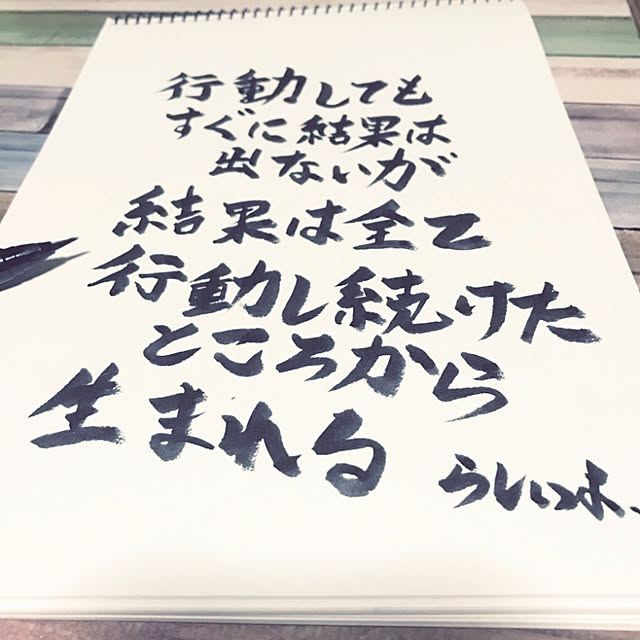 行動しても
すぐに結果は
出ないが
結果は全て
行動し続けた
ところから
生まれる
らしいよ、